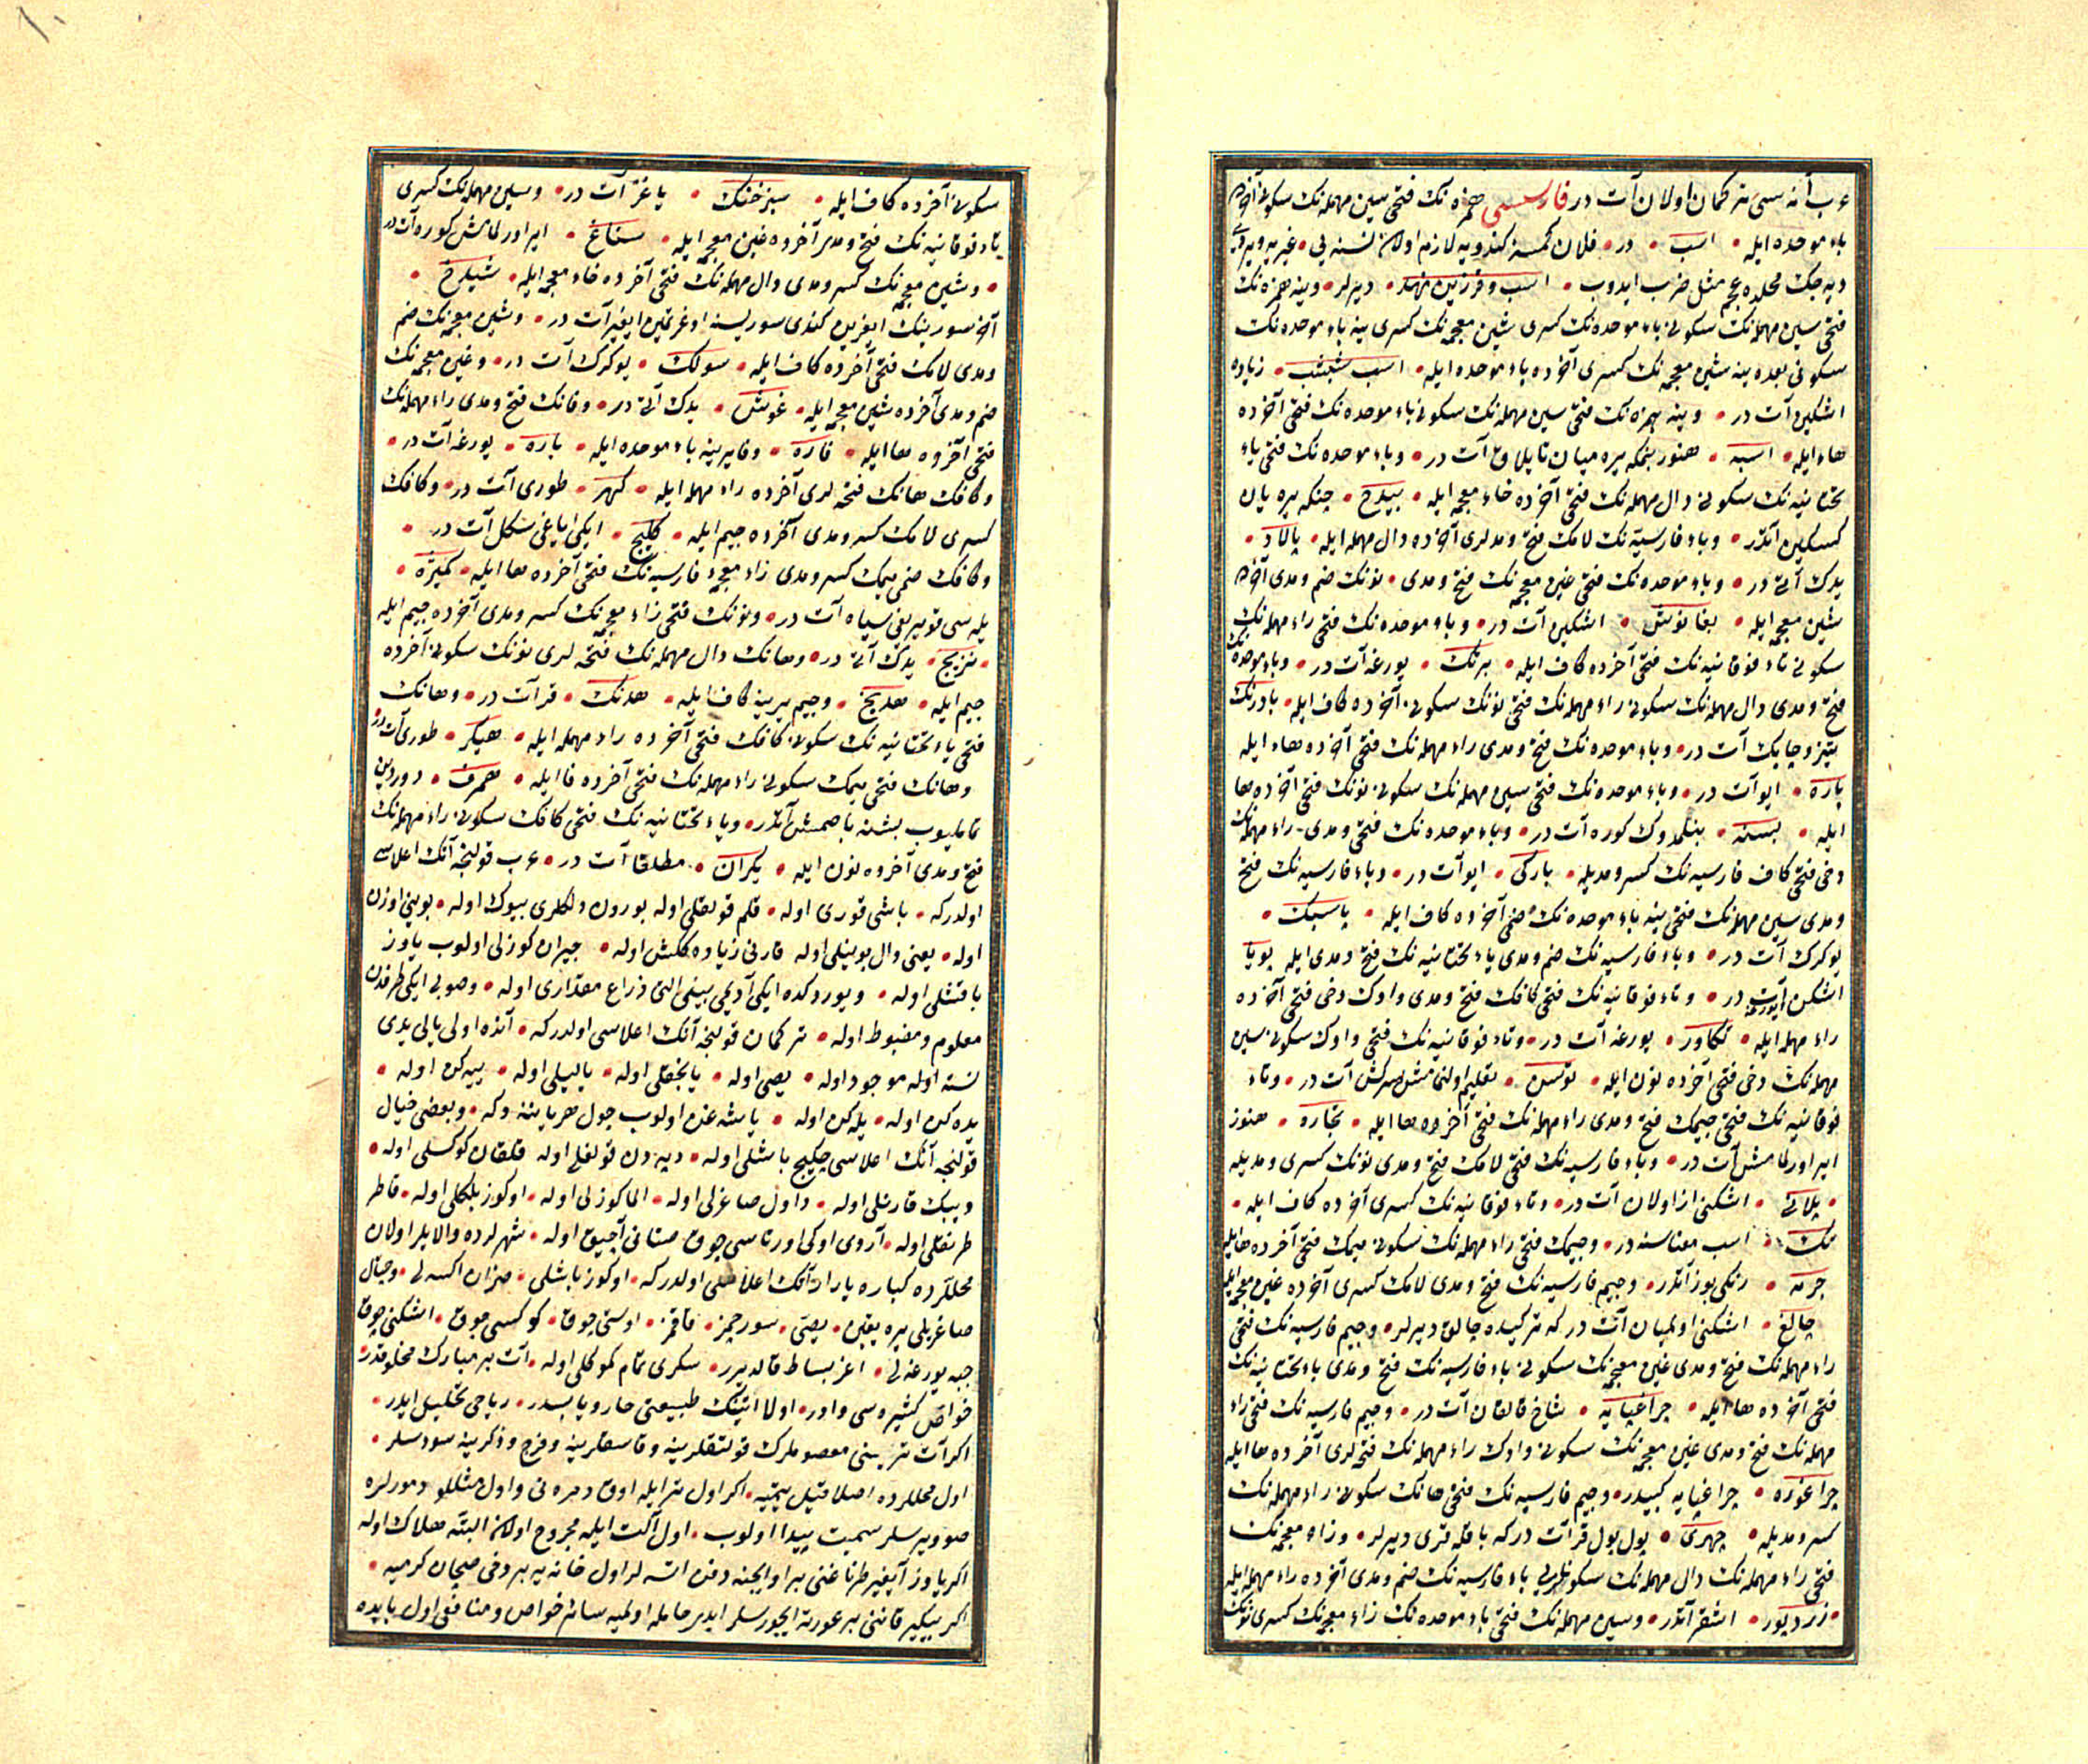 عرب آنه سی ترکمان اولان آت در فارسیسی همزه نک فتحی سین مهمله نک سکونی آخرده
باء موحده ایله • اسب • در • فلان کمسنه کندویه لازم اولان نسنه یی • غیریه ویردی
دیه جک محلده عجم مثل ضرب ایدوب • اسب و فرزین نهد • دیرلر • وینه همزه نک
فتحی سین مهمله نک سکونی باء موحده نک کسری شین معجمه نک کسری ینه باء موحده نک
سکونی بعده ینه شین معجمه نک کسری آخرده باء موحده ایله • اسب شبشب • زیاده
اشکین آت در • وینه همزه نک فتحی سین مهمله نک سکونی باء موحده نک فتحی آخرده
هاء ایله • اسبه • هنوز بنمکه یره میان تایلاق آت در • وباء موحده نک فتحی یاء
تحتانیه نک سکونی دال مهمله نک فتحی آخرده خاء معجمه ایله • بیدخ • جنکه یره یان
کسکین آتدر • وباء فارسیه نک لامک فتح ومدلری آخرده دال مهمله ایله • پالاد •
یدک آتی در • وباء موحده نک فتحی غین معجمه نک فتح ومدی • نونک ضم ومدی آخرده
شین معجمه ایله • بغانوش • اشکین آت در • وباء موحده نک فتحی راء مهمله نک
سکونی تاء فوقانیه نک فتحی آخرده کاف ایله • برتک • یورغه آت در • وباء موحده نک
فتح ومدی دال مهمله نک سکونی راء مهمله نک فتحی نونک سکونی آخرده کاف ایله • بادرنک
تیز وچابک آت در • وباء موحده نک فتح ومدی راء مهمله نک فتحی آخرده هاء ایله
باره • ایو آت در • وباء موحده نک فتحی سین مهمله نک سکونی نونک فتحی آخرده ها
ایله • بسنه • بنلمدوک کوره آت در • وباء موحده نک فتحی ومدی راء مهمله نک
دخی فتحی کاف فارسیه نک کسر ومدیله • بارکی • ایو آت در • وباء فارسیه نک فتح
ومدی سین مهمله نک فتحی ینه باء موحده نک ضمی آخرده کاف ایله • پاسبک •
یوکرک آت در • وباء فارسیه نک ضم ومدی یاء تحتانیه نک فتح ومدی ایله پویا
اشکن آت در • وتاء فوقانیه نک فتحی کافک فتح ومدی واوک دخی فتحی آخرده
راء مهمله ایله • تکاور • یورغه آت در • وتاء فوقانیه نک فتحی واوک سکونی سین
مهمله نک دخی فتحی آخرده نون ایله • توسن • تعلیم اولنمامش سرکش آت در • وتاء
فوقانیه نک فتحی جیمک فتح ومدی راء مهمله نک فتحی آخرده ها ایله • تجاره • هنوز
ایر اورلمامش آت در • وباء فارسیه نک فتحی لامک فتح ومدی نونک کسری ومدیله
• پلانی • اشکنی از اولان آت در • وتاء فوقانیه نک کسری آخرده کاف ایله •
تک • اسب معناسنه در • وجیمک فتحی راء مهمله نک سکونی میمک فتحی آخرده ها ایله
جرمه • رنکی بوز آتدر • وجیم فارسیه نک فتح ومدی لامک کسری آخرده غین معجمه ایله
چالغ • اشکنی اولمیان آت در که ترکیده چالق دیرلر • وجیم فارسیه نک فتحی
راء مهمله نک فتح ومدی غین معجمه نک سکونی باء فارسیه نک فتح ومدی یاء تحتانیه نک
فتحی آخرده ها ایله • چراغپایه • شاخ قالقان آت در • وجیم فارسیه نک فتحی راء
مهمله نک فتح ومدی غین معجمه نک سکونی واوک راء مهمله نک فتحه لری آخرده ها ایله
چراغوره • چراغپایه کبیدر • وجیم فارسیه نک فتحی هانک سکونی راء مهمله نک
کسر ومدیله • چهری • یول یول قر آت در که باقله قری دیرلر • وزاء معجمه نک
فتحی راء مهمله نک دال مهمله نک سکونلری باء فارسیه نک ضم ومدی آخرده راء مهمله ایله
• زردپور • اشقر آتدر • وسین مهمله نک فتحی باء موحده نک زاء معجمه نک کسری نونک
سکونی آخرده کاف ایله • سبزخنک • یاغز آت در • وسین مهمله نک کسری
تاء فوقانیه نک فتح ومدی آخرده غین معجمه ایله • ستاغ • ایر اورلمامش کوره آت در
• وشین معجمه نک کسر ومدی دال مهمله نک فتحی آخرده خاء معجمه ایله • شیدخ •
آخر سورینک ایغرین کندی سوریسنه اوغرتمین ایغیر آت در • وشین معجمه نک ضم
ومدی لامک فتحی آخرده کاف ایله • شولک • یوکرک آت در • وغین معجمه نک
ضم ومدی آخرده شین معجمه ایله • غوش • یدک آتی در • وفانک فتح ومدی راء مهمله نک
فتحی آخرده ها ایله • فاره • وفا یرینه باء موحده ایله • باره • یورغه آت در •
وکافک هانک فتحه لری آخرده راء مهمله ایله • کهر • طوری آت در • وکافک
کسری لامک کسر ومدی آخرده جیم ایله • کلیج • ایکی ایاغی سکل آت در •
وکافک ضمی میمک کسر ومدی زاء معجمه فارسیه نک فتحی آخرده ها ایله • کمیژه •
یله سی قویریغی سیاه آت در • ونونک فتحی زاء معجمه نک کسر ومدی آخرده جیم ایله
• نزیج • یدک آتی در • وهانک دال مهمله نک فتحه لری نونک سکونی آخرده
جیم ایله • هدنج • وجیم یرینه کاف ایله • هدنک • قر آت در • وهانک
فتحی یاء تحتانیه نک سکونی کافک فتحی آخرده راء مهمله ایله • هیکر • طوری آت در
وهانک فتحی میمک سکونی راء مهمله نک فتحی آخرده فا ایله • همرف • دوردین
تمامیوب بشنه باصمش آتدر • ویاء تحتانیه نک فتحی کافک سکونی راء مهمله نک
فتح ومدی آخرده نون ایله • یکران • مطلقا آت در • عرب قولنجه آتک اعلاسی
اولدرکه • باشی قوری اوله • قلم قولقلی اوله بورون دلکلری بیوک اوله • بوینی اوزن
اوله • یعنی دال بوینلی اوله قارنی زیاده کلکش اوله • جیران کوزلی اولوب یاوز
باقشلی اوله • ویوردکده ایکی آدیمی بینی التی ذراع مقداری اوله • وصوبی ایکی طرفدن
معلوم ومضبوط اوله • ترکمان قولنجه آتک اعلاسی اولدرکه • آتده اولی یالی یدی
نسنه اوله موجود اوله • یصی اوله • یانجقلی اوله • یالیلی اوله • ییه کن اوله •
یده کن اوله • یله کن اوله • یاشه غزن اولوب چول هر یاننه دکه • وبعضی خیال
قولنجه آتک اعلاسی چکیچ باشلی اوله • دیه دن قولقلی اوله قلقان کوکسلی اوله •
وببک قارنلی اوله • داول صاغرلی اوله • الما کوزلی اوله • اوکوز بلکلی اوله • قاطر
طرنقلی اوله • آردی اوکی اورتاسی چوق مستانی آچیق اوله • شهرلرده والایلر اولان
محللرده کباره یارار آتک اعلاسی اولدرکه • اوکوز باشلی • میزان اکسه لی • وجتال
صاغریلی یره یقین • یصی • سورچمز • قاقمز • اوستی چوق • کوکسی چوق • اشکنی چوق
جبه یورغه لی • اغز بساط قالدیرر • سکری تمام کموکلی اوله • آت بر مبارک مخلوقدر
خواص کثیره سی واردر • اولا اتینک طبیعتی حار ویابسدر • ریاحی تحلیل ایدر •
اکر آت ترینی معصوملرک قولتقلرینه وقاسقلرینه وفرج وذکرینه سورسلر •
اول محللرده اصلا قیل بیتمیه • اکر اول تر ایله اوق دمره نی واول مثللو دمورلره
صو ویرسلر سمیت پیدا اولوب • اول آلت ایله مجروح اولان البته هلاک اوله
اکر یاوز آیغیر طرناغنی بر اوایچنه دفن اتسه لر اول خانه یه بر دخی صچان کرمیه •
اکر بیکیر قاننی بر عورته ایچورسلر ابدی حامله اولمیه سائر خواص ومنافعی اول بابده